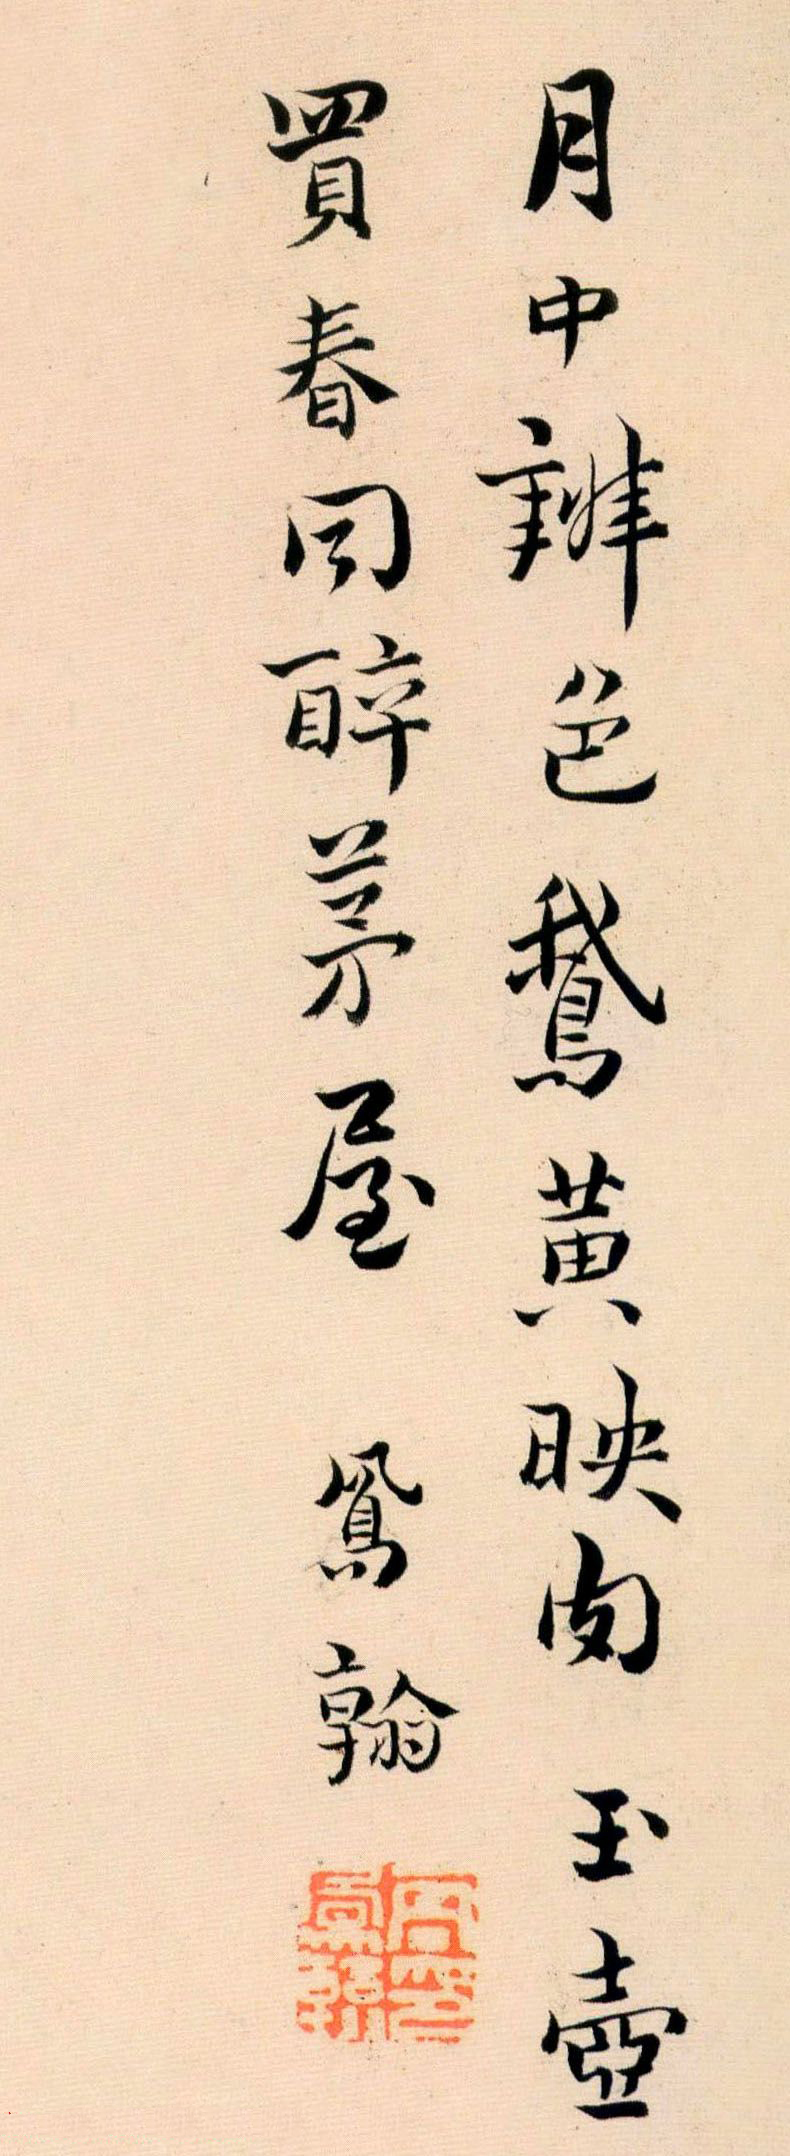 月中辨色鵝黃映肉玉壺
買春同醉茅屋 鳳翰